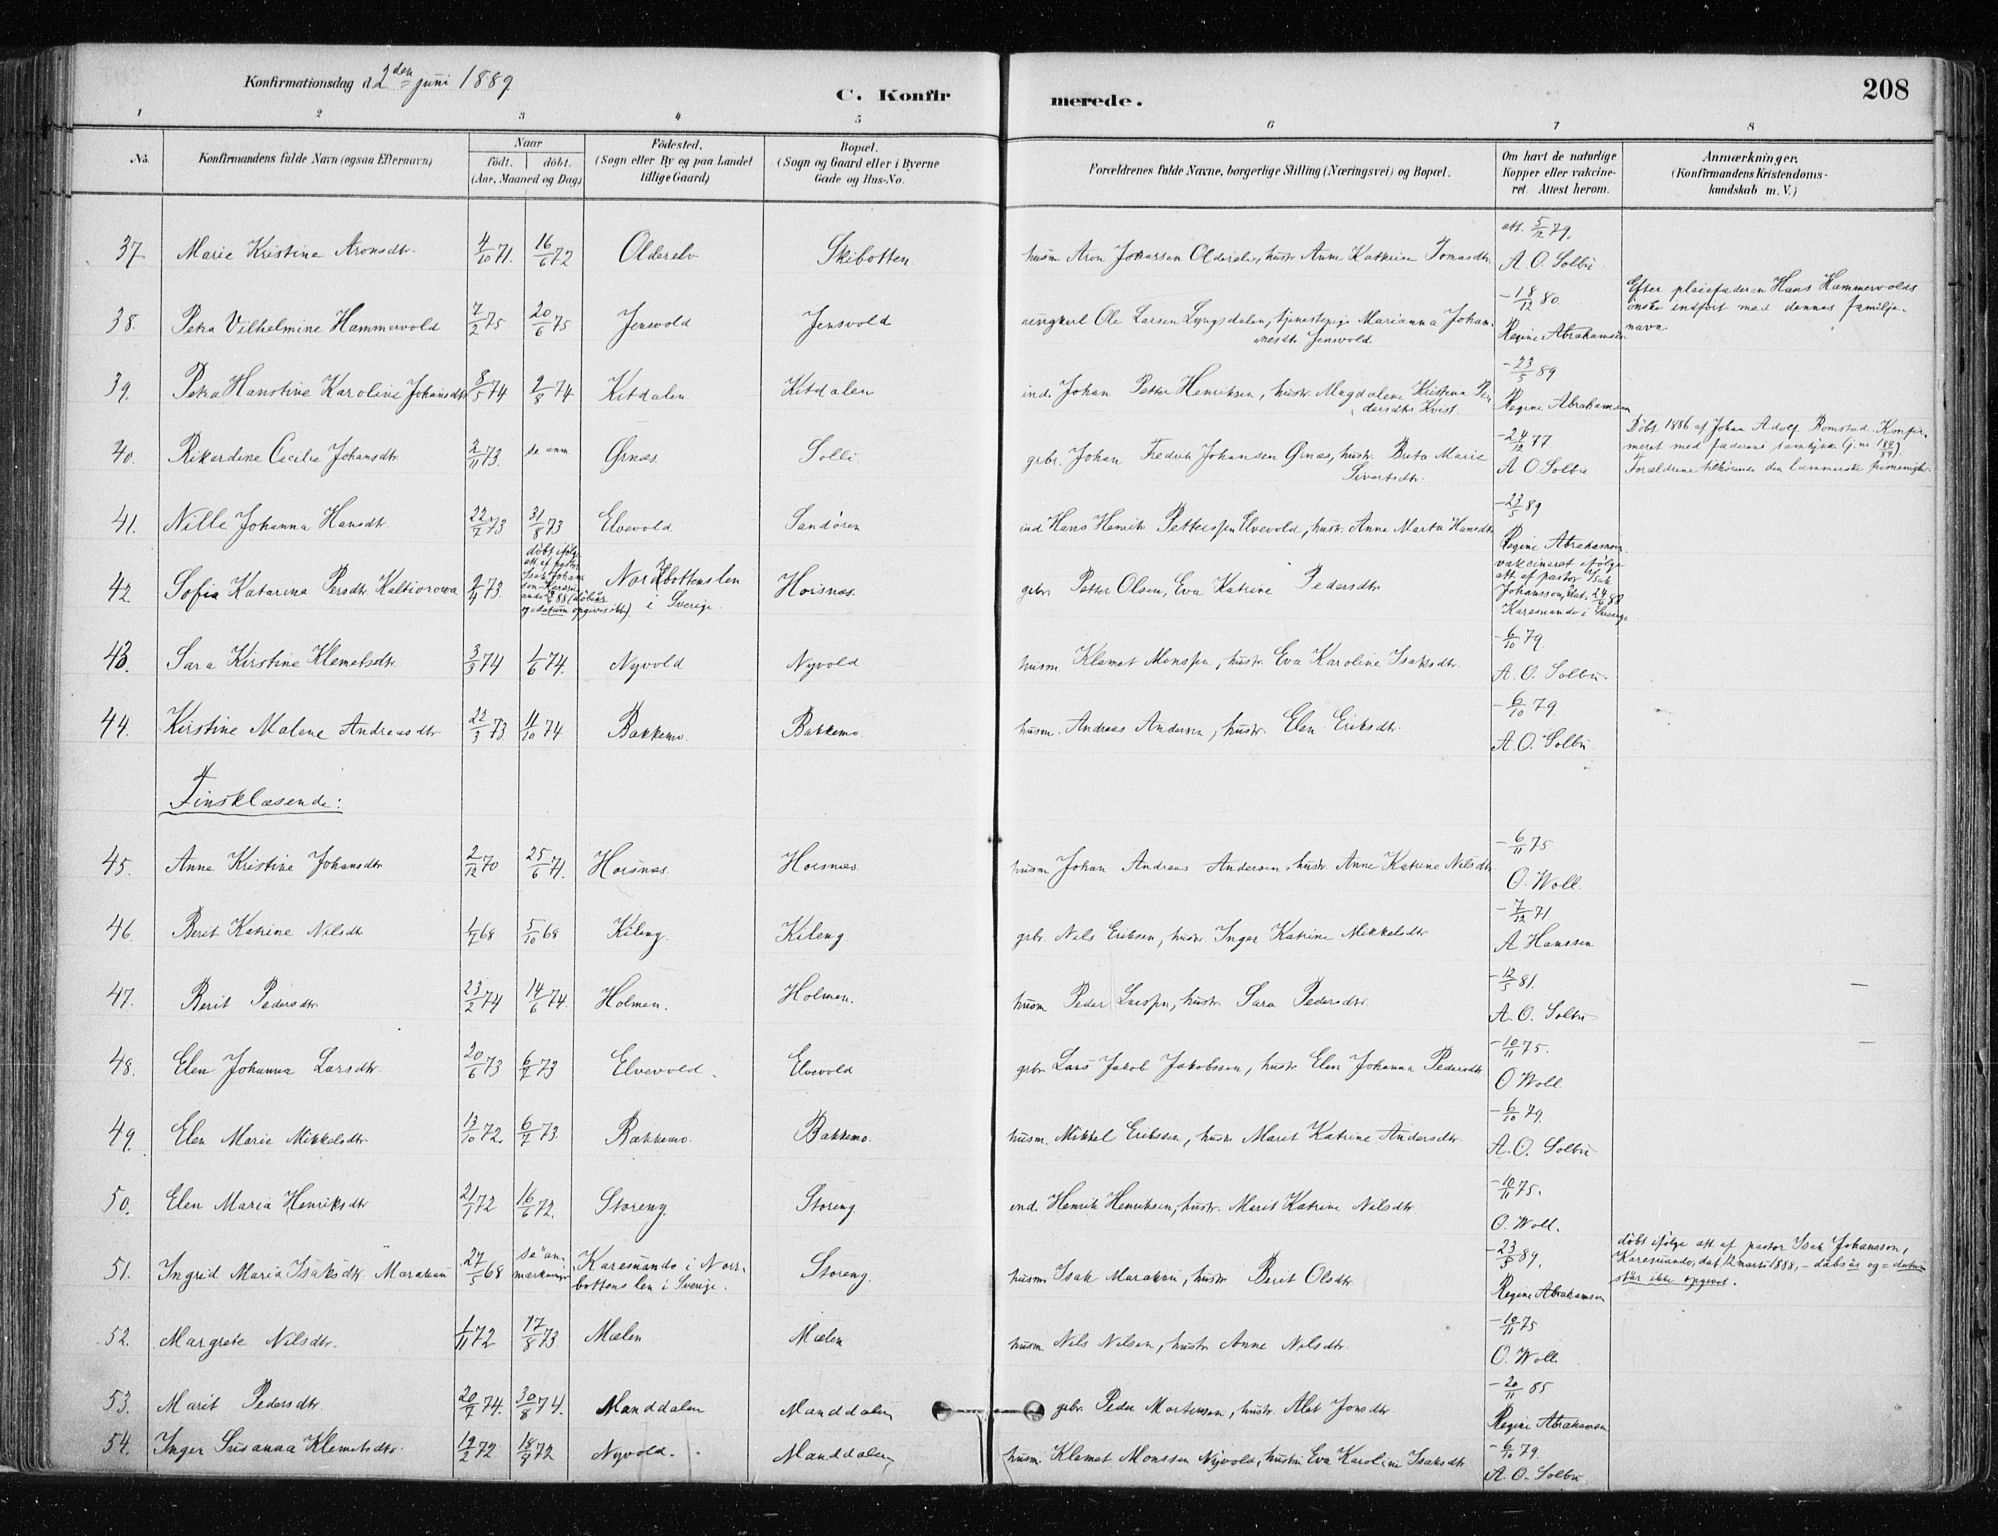 Konfirmationsdag d. 2den juni 1889
C. Konfirmerede.
208
1 2 3 4 5 6 7 8
No.
Konfirmandens fulde Navn (ogsaa Efternavn)
Naar
født. døbt.
(Aar, Maaned og Dag)
Fødested.
(Sogn eller By og paa Landet
tillige Gaard)
Bopæl.
(Sogn og Gaard eller i Byerne
Gade og Hus-No.
Forældrenes fulde Navne, borgerlige Stilling (Næringsvei) og Bopæl.
Om havt de naturlige
Kopper eller vakcine-
ret. Attest herom.
Anmærkninger.
(Konfirmandens Kristendoms-
kundskab m. V.)
37. Marie Kristine Aronsdtr. 4/10 71. 16/6 72 Olderelv Skibotten husm Aron Johansen Olderelv, hustr. Anne Katrine Tomasdtr. att. 5/12 79.
A. O. Solbu
38. Petra Vilhelmine Hammervold 7/2 75 20/6 75 Jensvold Jensvold ungkarl Ole Larsen Lyngsdalen, tjenestepige Marianna Johan-
nesdtr Jensvold. - 18/12 80.
Regine Abrahamsen
Efter pleiefaderen Hans Hammervolds
ønske indført med dennes familje-
navn
39. Petra Hanstine Karoline Johansdtr 8/5 74 2/8 74 Kitdalen Kitdalen ind. Johan Petter Henriksen, hustr. Magdalene Kristina Pe-
dersdtr Kvist. - 23/5 89
Regine Abrahamsen
40. Rikardine Cecilie Johansdtr 2/11 73. se anm. Ørnæs. Solli gbr. Johan Fredrik Johansen Ørnæs, hustr. Brita Marie
Sivertsdtr. - 24/12 77
A. O. Solbu
Døbt 1886 af Johan Adolf Bomstad. Konfir-
meret med faderens samtykke (j. nr 184/89).
Forældrene tilhørende den lammerske frimenighed.
41. Nille Johanna Hansdtr. 22/7 73 31/8 73 Elvevold Sandøren ind Hans Henrik Pettersen Elvevold, hustr. Anne Marta Hansdtr - 23/5 89
Regine Abrahamsen.
42. Sofia Katarina Persdtr Keltiorowa 2/4 73. døbt ifølge
att. af pastor
Isak Johans
son Karesu
ando (dåbsår
og datum opgives ikke) Nordbottenslen
i Sverige. Horsnæs. gbr. Petter Olsen, Eva Katrine Pedersdtr. vakcineret ifølge
att af pastor Isak
Johansson, dat. 24/6 88
Karesuando i Sverige.
43. Sara Kirstine Klemetsdtr. 3/3 74 1/6 74. Nyvold Nyvold husm. Klemet Monsen, hustr. Eva Karoline Isaksdtr. - 6/10 79.
A. O. Solbu.
44. Kirstine Malene Andreasdtr. 22/3 73. 11/10 74 Bakkemo. Bakkemo husm. Andreas Andersen, hustr. Elen Eriksdtr. - 6/10 79.
A. O. Solbu
Finsklæsende:
45. Anne Kristine Johansdtr 2/12 70 25/6 71. Horsnæs. Horsnæs. husm Johan Andreas Andersen, hustr. Anne Katrine Nilsdtr. - 6/11 75
O. Woll.
46. Berit Katrine Nilsdtr. 1/7 68 5/10 68 Kileng. Kileng gbr. Nils Eriksen, hustr. Inger Katrine Mikkelsdtr - 7/12 71
A Hanssen
47. Berit Pedersdtr. 23/2 74 14/6 74. Holmen. Holmen. husm Peder Larsen, hustr Sara Pedersdtr. - 12/5 81.
A. O. Solbu
48. Elen Johanna Larsdtr. 20/6 73 6/7 73 Elvevold. Elvevold gbr. Lars Jakob Jakobsen, hustr Elen Johanna Pedersdtr - 10/11 75.
O Woll
49. Elen Marie Mikkelsdtr 13/10 72. 6/7 73. Bakkemo. Bakkemo. husm. Mikkel Eriksen, hustr. Marit Katrine Andersdtr. - 6/10 79.
A. O. Solbu
50. Elen Maria Henriksdtr 21/1 72 16/6 72. Storeng Storeng ind. Henrik Henriksen, hustr. Marit Katrine Nilsdtr. - 10/11 75.
O. Woll.
51. Ingrid Maria Isaksdtr. Marakau 27/5 68 se an-
mærkninger Karesuando i Norr-
bottens len i Sverige. Storeng. husm Isak Marakau, hustr. Berit Olsdtr. - 23/5 89.
Regine Abrahamsen
døbt ifølge att. af pastor Isak Johansson,
Karesuando, dat 12 marts 1888, - dåbsår og = datum
står ikke opgivet.
52. Margrete Nilsdtr. 1/11 72 17/8 73 Mælen Mælen husm Nils Nilsen, hustr Anne Nilsdtr. - 10/11 75
O. Woll
53. Marit Pedersdtr. 20/7 74. 30/8 74. Manddalen Manddalen gbr. Peder Mortensen, hustr. Alet Jonsdtr. - 20/11 85
Regine Abrahamsen
54. Inger Susanna Klemetsdtr. 19/2 72 18/9 72 Nyvold. Manddalen husm. Klemet Monssen Nyvold, hustru Eva Karoline Isaksdtr - 6/10 79.
A. O. Solbu